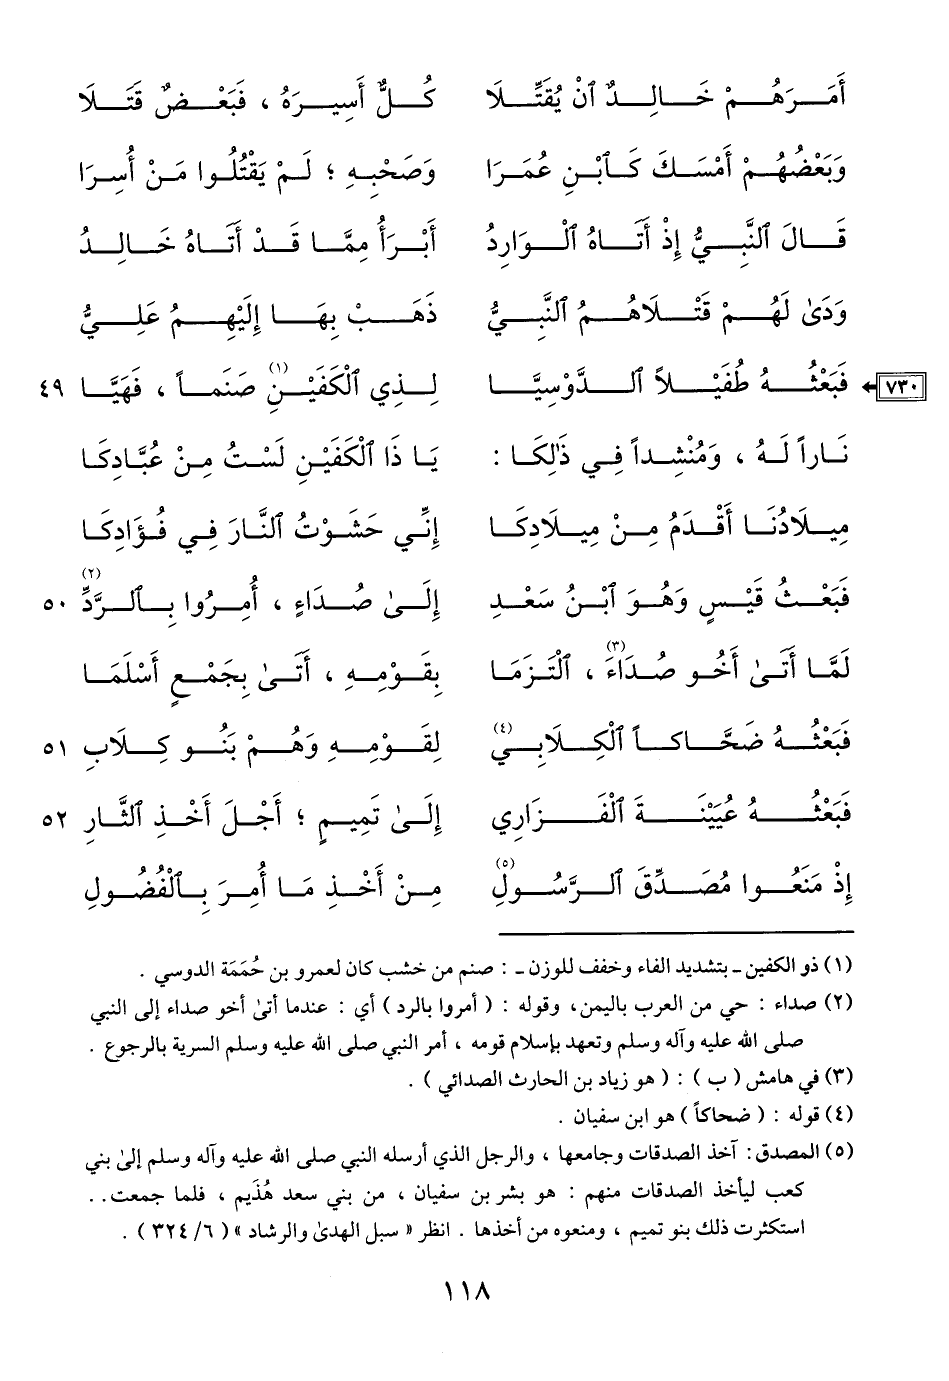 أَمَرَهُمْ خَالِدٌ ٱنْ يُقَتِّلَا كُلٌّ أَسِيرَهُ ، فَبَعْضٌ قَتَلَا
وَبَعْضُهُمْ أَمْسَكَ كَٱبْنِ عُمَرَا وَصَحْبِهِ ؛ لَمْ يَقْتُلُوا مَنْ أُسِرَا
قَالَ ٱلنَّبِيُّ إِذْ أَتَاهُ ٱلْوَارِدُ أَبْرَأُ مِمَّا قَدْ أَتَاهُ خَالِدُ
وَدَىٰ لَهُمْ قَتْلَاهُمُ ٱلنَّبِيُّ ذَهَبْ بِهَا إِلَيْهِمُ عَلِيُّ
٧٣٠ فَبَعْثُهُ طُفَيْلاً ٱلدَّوْسِيَّا لِذِي ٱلْكَفَيْنِ(١) صَنَماً ، فَهَيَّا ٤٩
نَاراً لَهُ ، وَمُنْشِداً فِي ذٰلِكَا : يَا ذَا ٱلْكَفَيْنِ لَسْتُ مِنْ عُبَّادِكَا
مِيلَادُنَا أَقْدَمُ مِنْ مِيلَادِكَا إِنِّي حَشَوْتُ ٱلنَّارَ فِي فُؤَادِكَا
فَبَعْثُ قَيْسٍ وَهُوَ ٱبْنُ سَعْدِ إِلَىٰ صُدَاءٍ ، أُمِرُوا بِٱلرَّدِّ(٢) ٥٠
لَمَّا أَتَىٰ أَخُو صُدَاءَ(٣) ، ٱلْتَزَمَا بِقَوْمِهِ ، أَتَىٰ بِجَمْعٍ أَسْلَمَا
فَبَعْثُهُ ضَحَّاكاً ٱلْكِلَابِي(٤) لِقَوْمِهِ وَهُمْ بَنُو كِلَابِ ٥١
فَبَعْثُهُ عُيَيْنَةَ ٱلْفَزَارِي إِلَىٰ تَمِيمٍ ؛ أَجْلَ أَخْذِ ٱلثَّارِ ٥٢
إِذْ مَنَعُوا مُصَدِّقَ ٱلرَّسُولِ(٥) مِنْ أَخْذِ مَا أُمِرَ بِٱلْفُضُولِ
(١) ذو الكفين ـ بتشديد الفاء وخفف للوزن ـ : صنم من خشب كان لعمرو بن حُمَمَة الدوسي .
(٢) صداء : حي من العرب باليمن، وقوله : ( أمروا بالرد ) أي : عندما أتىٰ أخو صداء إلى النبي
صلى الله عليه وآله وسلم وتعهد بإسلام قومه ، أمر النبي صلى الله عليه وسلم السرية بالرجوع .
(٣) في هامش ( ب ) : ( هو زياد بن الحارث الصدائي ) .
(٤) قوله : ( ضحاكاً ) هو ابن سفيان .
(٥) المصدق: آخذ الصدقات وجامعها ، والرجل الذي أرسله النبي صلى الله عليه وآله وسلم إلىٰ بني
كعب ليأخذ الصدقات منهم : هو بشر بن سفيان ، من بني سعد هُذَيم ، فلما جمعت..
استكثرت ذلك بنو تميم ، ومنعوه من أخذها . انظر « سبل الهدىٰ والرشاد » ( ٦/ ٣٢٤ ) .
١١٨